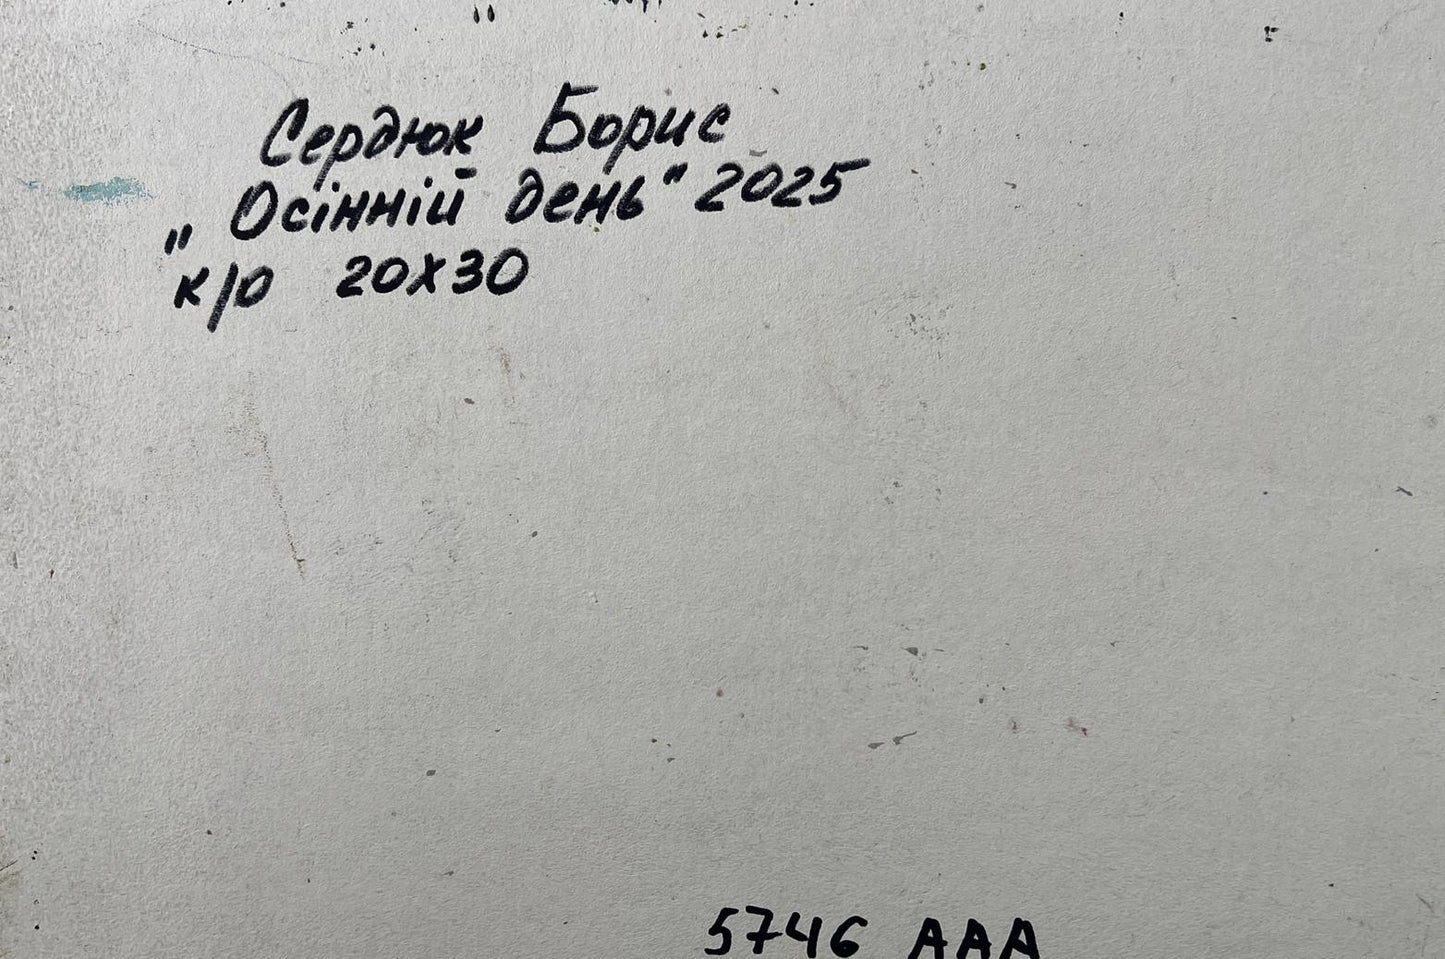 Сердюк Борис
„Осінній день" 2025
к/о 20х30
5746 ААА